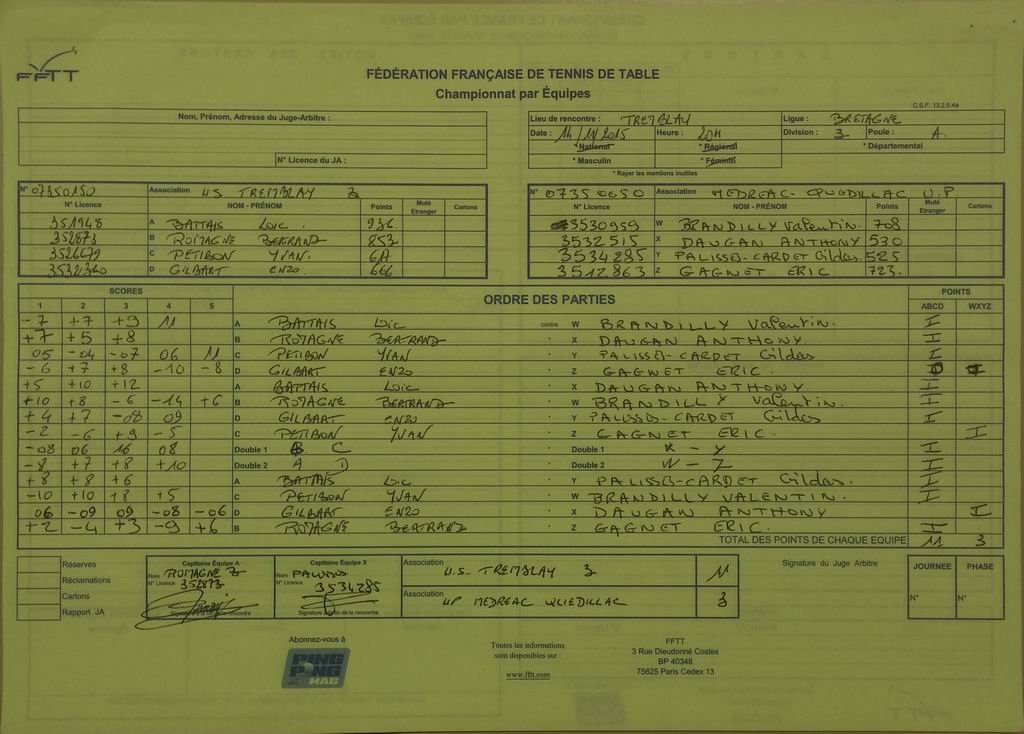 FFTT
FÉDÉRATION FRANÇAISE DE TENNIS DE TABLE
Championnat par Équipes
C.S.F. 13.2.0.4a
Nom, Prénom, Adresse du Juge-Arbitre :
N° Licence du JA :
Lieu de rencontre : TREMBLAY Ligue : BRETAGNE
Date : 14/11/2015 Heure : 20H Division : 3 Poule : A.
* National * Régional * Départemental
* Masculin * Féminin
* Rayer les mentions inutiles
N° 07350150 Association U.S TREMBLAY 3
N° Licence NOM - PRÉNOM Points Muté Etranger Cartons
351948 A BATTAIS Loïc. 936
352873 B ROMAGNE BERTRAND 853
3526679 C PETIBON YVAN.
3532360 D GILBART ENZO. 666
N° 07350650 Association MEDREAC-QUEDILLAC U.P
N° Licence NOM - PRÉNOM Points Muté Etranger Cartons
3530959 W BRANDILLY Valentin. 708
3532515 X DAUGAN ANTHONY 530
3534285 Y PALISSES-CARDET Gildas 525
3512863 Z GAGNET ERIC 723.
SCORES ORDRE DES PARTIES POINTS
1 2 3 4 5 ABCD WXYZ
-7 +7 +9 11 A BATTAIS Loïc contre W BRANDILLY Valentin. I
+7 +5 +8 B ROMAGNE BERTRAND X DAUGAN ANTHONY. I
05 -04 -07 06 11 C PETIBON YVAN Y PALISSES-CARDET Gildas I
-6 +7 +8 -10 -8 D GILBART ENZO Z GAGNET ERIC.
+5 +10 +12 A BATTAIS Loïc X DAUGAN ANTHONY. I
+10 +8 -6 -14 +6 B ROMAGNE BERTRAND W BRANDILLY Valentin. I
+4 +7 -08 09 D GILBART ENZO Y PALISSES-CARDET Gildas I
-2 -6 +9 -5 C PETIBON YVAN Z GAGNET ERIC. I
-08 06 16 08 Double 1 B C Double 1 X - Y I
-8 +7 +8 +10 Double 2 A D Double 2 W - Z I
+8 +8 +6 A BATTAIS Loïc Y PALISSES-CARDET Gildas. I
-10 +10 +8 +5 C PETIBON YVAN W BRANDILLY VALENTIN. I
06 -09 09 -08 -06 D GILBART ENZO X DAUGAN ANTHONY I
+2 -4 +3 -9 +6 B ROMAGNE BERTRAND Z GAGNET ERIC. I
TOTAL DES POINTS DE CHAQUE EQUIPE 11 3
Réserves
Réclamations
Cartons
Rapport JA
Capitaine Équipe A
Nom ROMAGNE B
N° Licence 352873
Signature à la fin de la rencontre
Capitaine Équipe X
Nom PALISSES
N° Licence 3534285
Signature à la fin de la rencontre
Association U.S. TREMBLAY 3 11
Association UP MEDREAC QUEDILLAC 3
Signature du Juge Arbitre
JOURNEE PHASE
N° N°
Abonnez-vous à
PING PONG MAG
Toutes les informations
sont disponibles sur :
www.fftt.com
FFTT
3 Rue Dieudonné Costes
BP 40348
75625 Paris Cedex 13